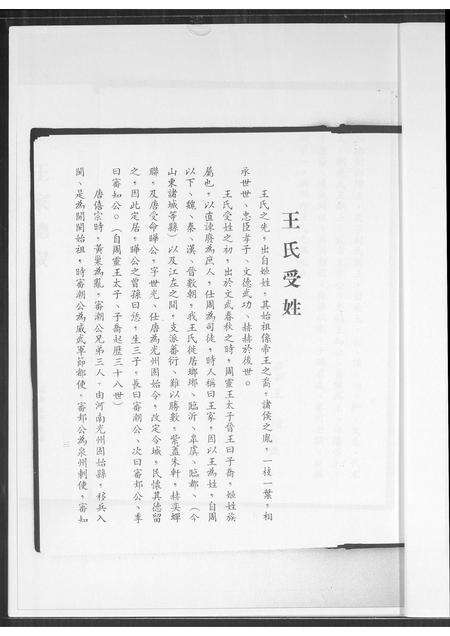 王氏受姓
王氏之先，出自姬姓，其始祖係帝王之裔，諸侯之胤，一枝一葉，相
承世世、忠臣孝子、文德武功、赫赫於後世。
王氏受姓之初，出於文武春秋之時，周靈王太子晉王曰子喬，姬姓族
屬也，以直諫廢為庶人，仕周為司徒，時人稱曰王家，因以王為姓，自周
以下、魏、秦、漢、晉數朝，我王氏徙居瑯琊、臨沂、皐虞、臨都、（今
山東諸城等縣）以及江左之間，支派蕃衍、難以勝數，紫蓋朱軒，赫奕蟬
聯，及唐受命曄公，字世光、仕唐為光州固始令，改定令城，民懷其德留
之，因此定居，曄公之曾孫曰恁，生三子，長曰審潮公、次曰審邽公、季
曰審知公。（自周靈王太子、子喬起歷三十八世）
唐僖宗時，黃巢為亂，審潮公兄弟三人、由河南光州固始縣，移兵入
閩、是為閩開始祖，時審潮公為威武軍節都使、審邽公為泉州刺使，審知